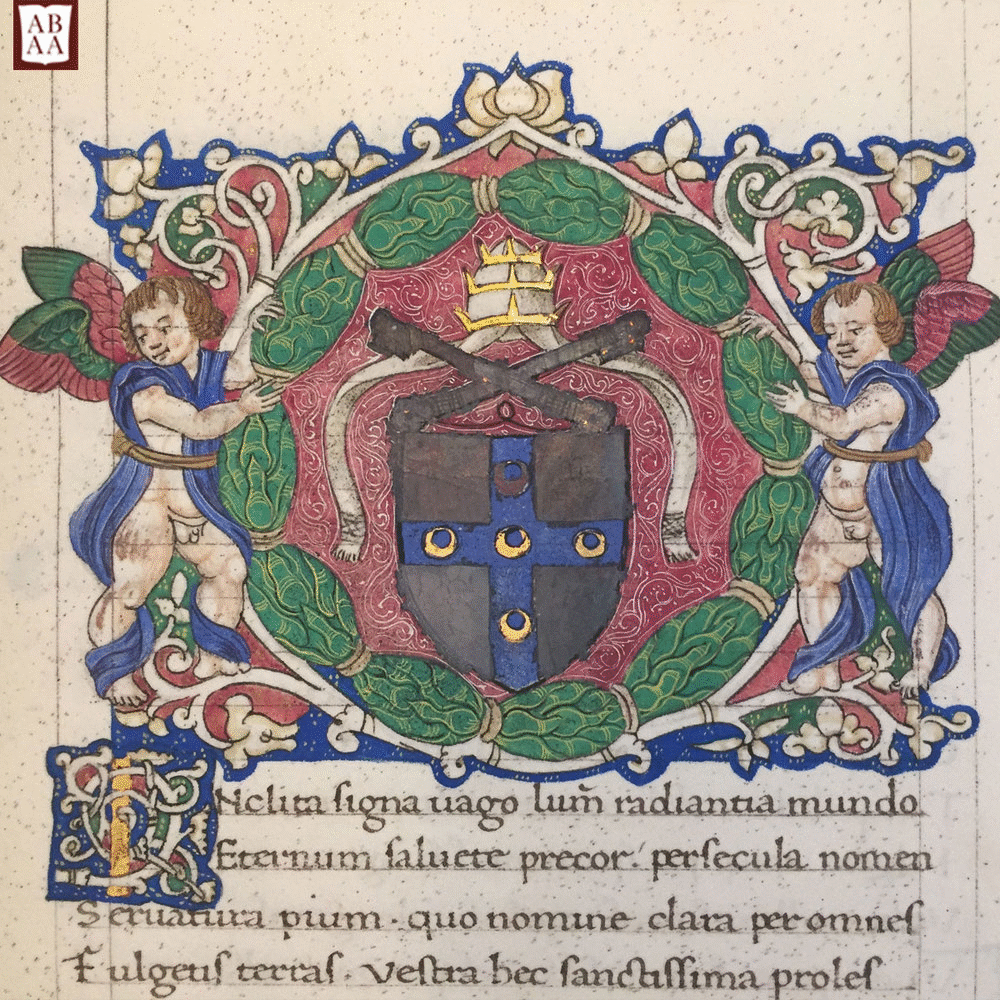 AB
AA
INclita signa uago lum̃ radiantia mundo
Eternum saluete precor. persecula nomen
Seruatura pium. quo nomine clara per omnes
Fulgetis terras. Vestra hec sanctissima proles